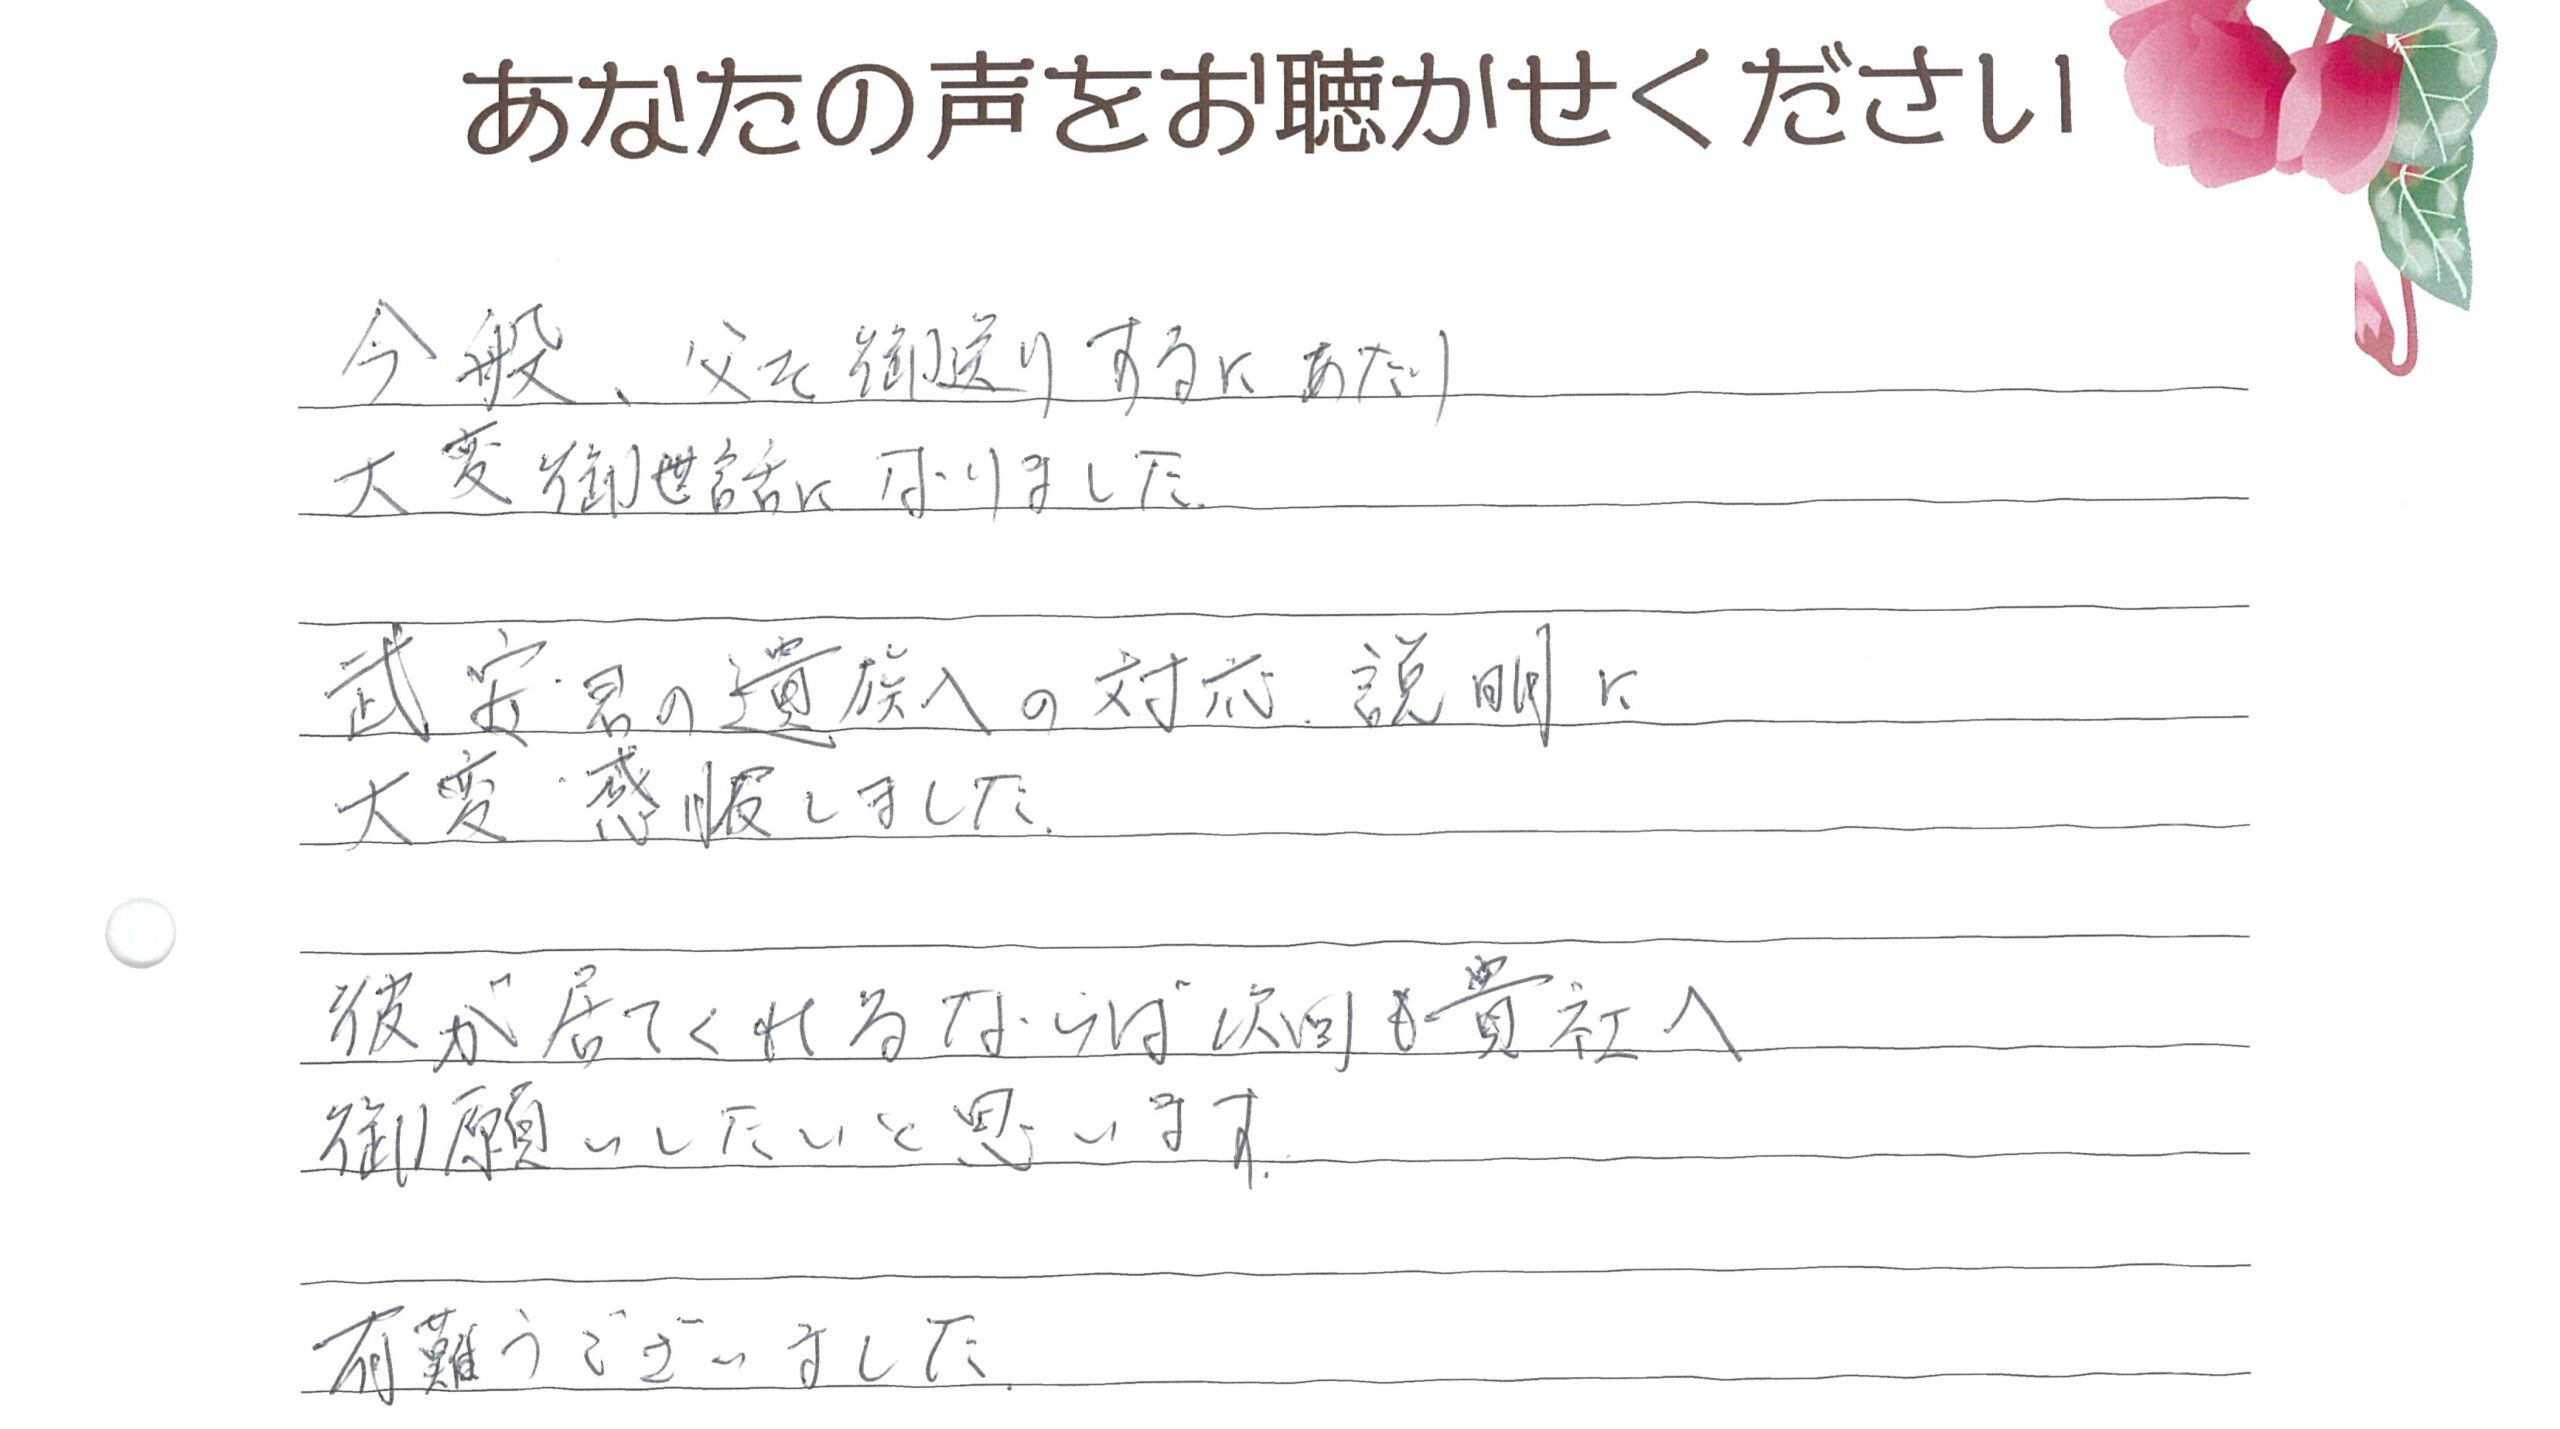 あなたの声をお聴かせください
今般、父を御送りするにあたり
大変御世話になりました.
武安君の遺族への対応.説明に
大変感服しました.
彼が居てくれるならば次回も貴社へ
御願いしたいと思います.
有難うございました.